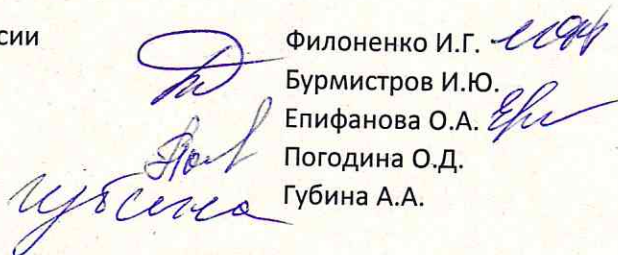 сии
Филоненко И.Г.
Бурмистров И.Ю.
Епифанова О.А.
Погодина О.Д.
губина Губина А.А.